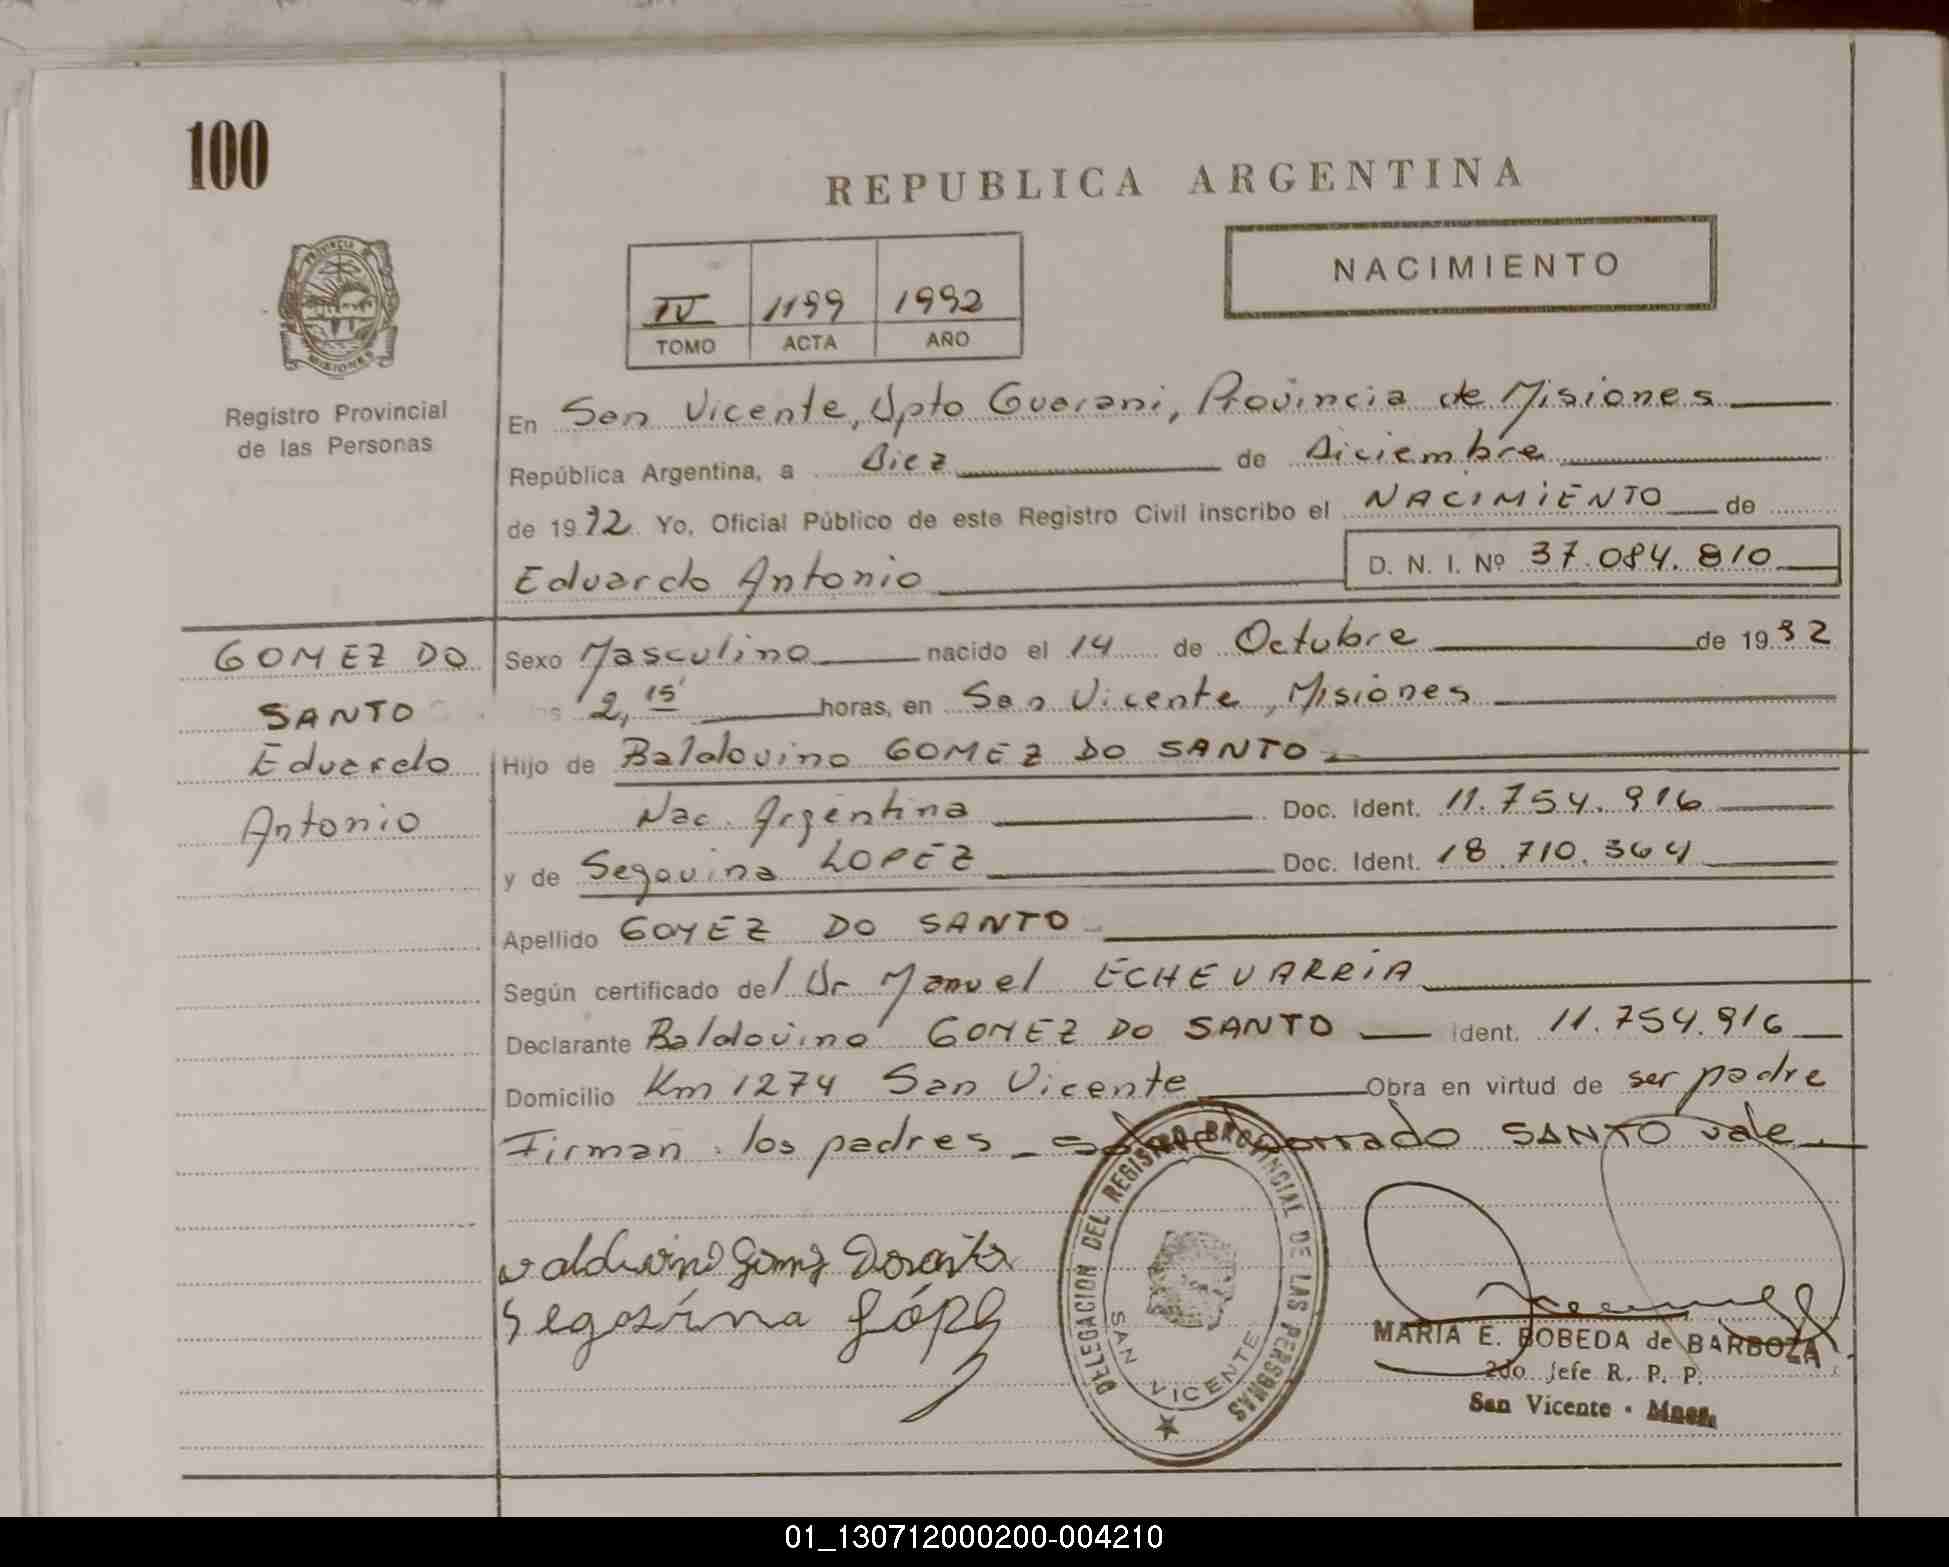 100
REPUBLICA ARGENTINA
NACIMIENTO
PROVINCIA DE
MISIONES
Registro Provincial
de las Personas
IV 1199 1992
TOMO ACTA AÑO
En San Vicente, Dpto Guarani, Provincia de Misiones
República Argentina, a Diez de Diciembre
de 1992 Yo, Oficial Público de este Registro Civil inscribo el NACIMIENTO de
Eduardo Antonio D. N. I. Nº 37.084.810
GOMEZ DO
SANTO
Eduardo
Antonio
Sexo Masculino nacido el 14 de Octubre de 1992
las 2,15 horas, en San Vicente, Misiones
Hijo de Baldovino GOMEZ DO SANTO
Nac. Argentina Doc. Ident. 11.754.916
y de Segovina LOPEZ Doc. Ident. 18.710.364
Apellido GOMEZ DO SANTO
Según certificado del Dr Manuel ECHEVARRIA
Declarante Baldovino GOMEZ DO SANTO Ident. 11.754.916
Domicilio Km 1274 San Vicente Obra en virtud de ser padre
Firman los padres - Sobre borrado SANTO vale
Segovina López
DELEGACION DEL REGISTRO PROVINCIAL DE LAS PERSONAS
SAN VICENTE
MARIA E. BOBEDA de BARBOZA
2do Jefe R. P. P.
San Vicente - Mnes.
01_130712000200-004210